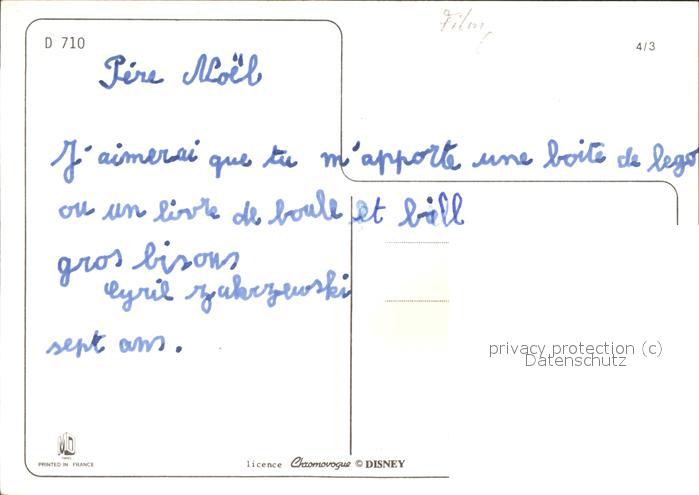 Film
D 710
4/3
Pére Noël
J'aimerai que tu m'apporte une boite de lego
ou un livre de boule et bill
gros bisous
Cyril zakrzewski
sept ans.
privacy protection (c)
Datenschutz
PRINTED IN FRANCE
licence Chromovogue © DISNEY